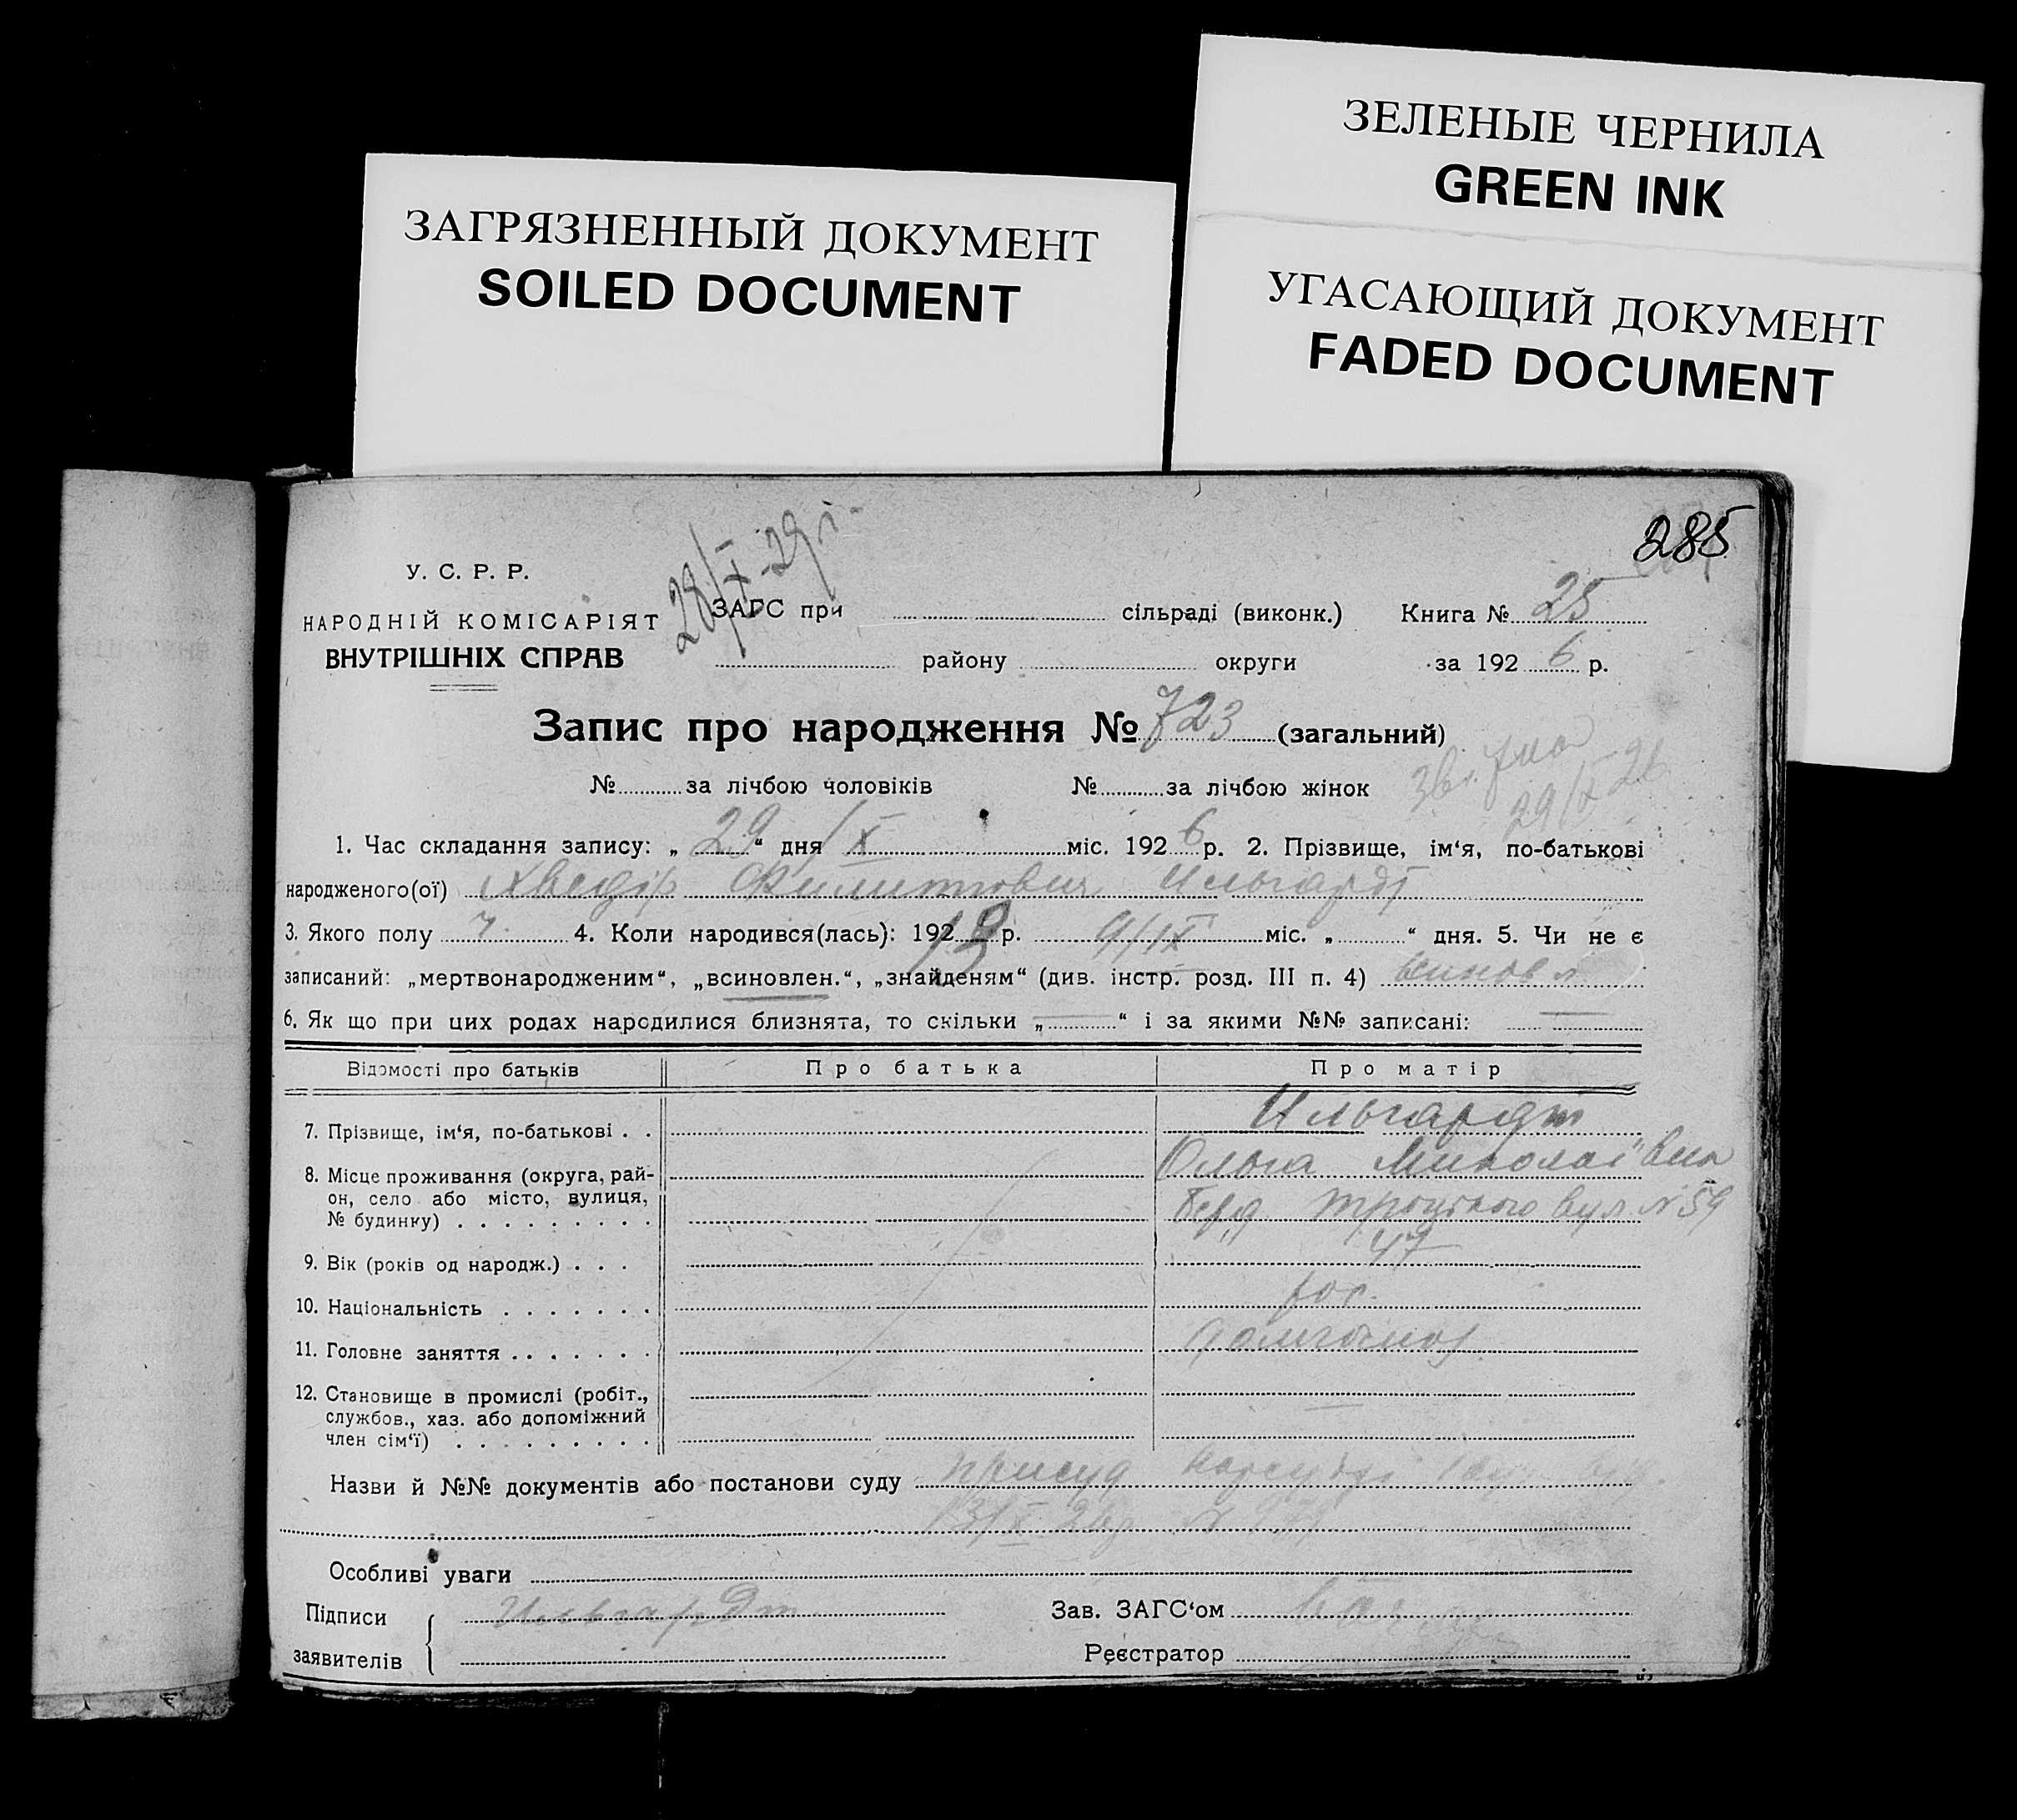 ЗЕЛЕНЫЕ ЧЕРНИЛА
GREEN INK
ЗАГРЯЗНЕННЫЙ ДОКУМЕНТ
SOILED DOCUMENT
УГАСАЮЩИЙ ДОКУМЕНТ
FADED DOCUMENT
285
28/X-29 г.
У. С. Р. Р.
НАРОДНІЙ КОМІСАРІЯТ
ВНУТРІШНІХ СПРАВ
ЗАГС при сільраді (виконк.) Книга № 25
району округи за 192 6 р.
Запис про народження № 723 (загальний)
29/X-26
№ за лічбою чоловіків № за лічбою жінок
1. Час складання запису: „ 29 “ дня X міс. 192 6 р. 2. Прізвище, ім‘я, по-батькові
народженого(ої) Хведір Филиппович Ильгардт
3. Якого полу ч. 4. Коли народився(лась): 192 р. 9/IX міс. „ “ дня. 5. Чи не є
записаний: „мертвонародженим“, „всиновлен.“, „знайденям“ (див. інстр. розд. III п. 4) всиновл
6. Як що при цих родах народилися близнята, то скільки „ — “ і за якими №№ записані: —
Відомості про батьків Про батька Про матір
7. Прізвище, ім‘я, по-батькові . . Ильгардт
Ольга Миколаївна
8. Місце проживання (округа, рай-
он, село або місто, вулиця,
№ будинку) . . . . . . . . . Берд. Троцького вул. № 59
9. Вік (років од народж.) . . . 47
10. Національність . . . . . . . рос.
11. Головне заняття . . . . . . .
12. Становище в промислі (робіт.,
службов., хаз. або допоміжний
член сім‘ї) . . . . . . . . . —
Назви й №№ документів або постанови суду присуд Нарсуду
Особливі уваги
Підписи Ильгардт Зав. ЗАГС‘ом
заявителів Реєстратор